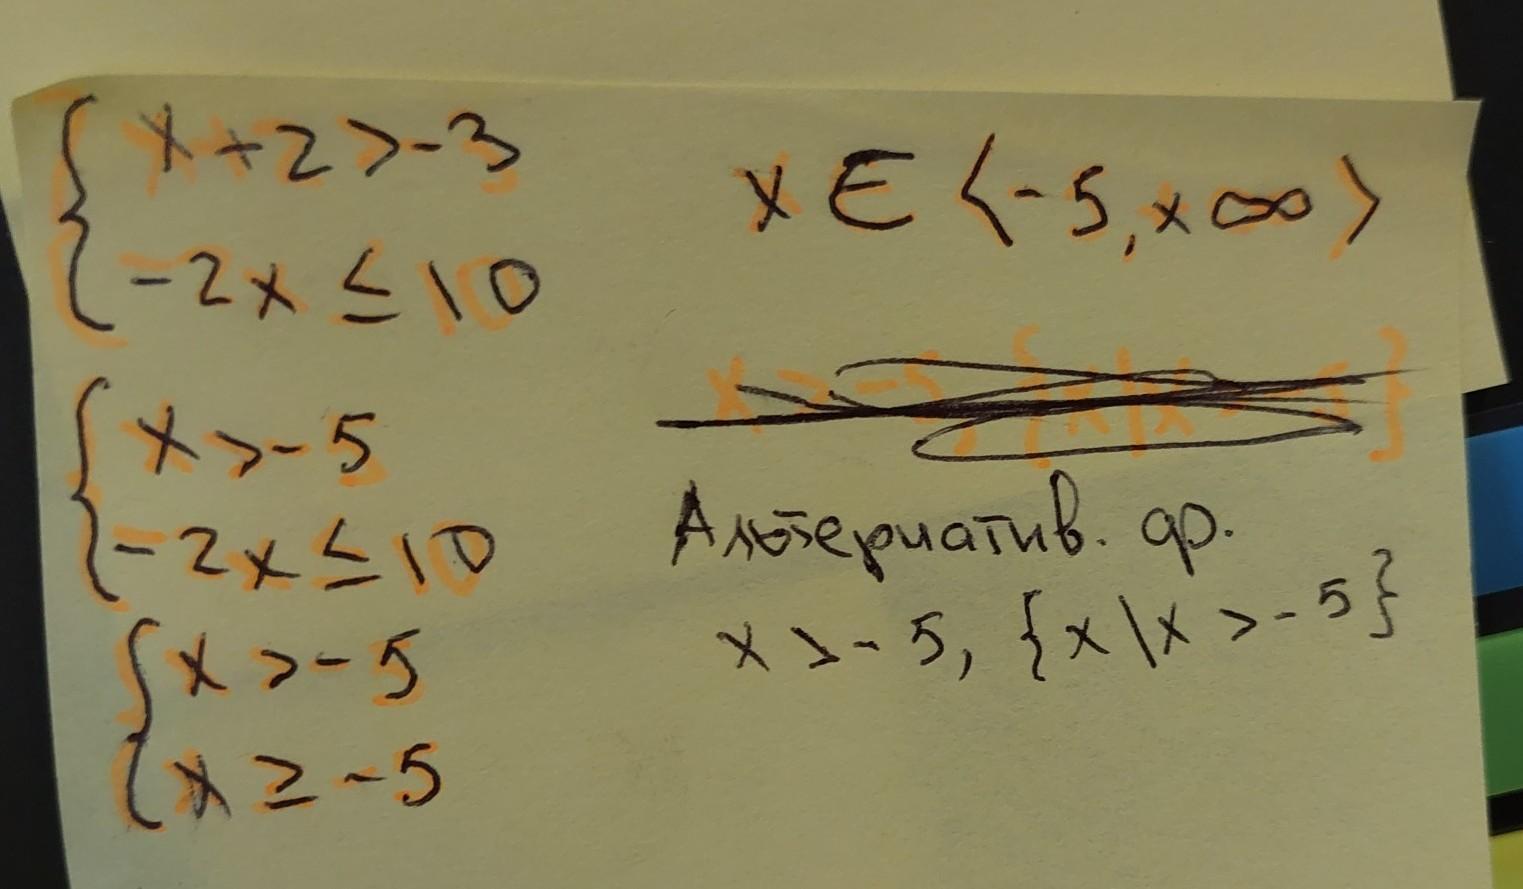 x+2>-3
-2x≤10
x>-5
-2x≤10
x>-5
x≥-5
x∈⟨-5,x∞⟩
Альтернатив. ф.
x>-5, {x|x>-5}